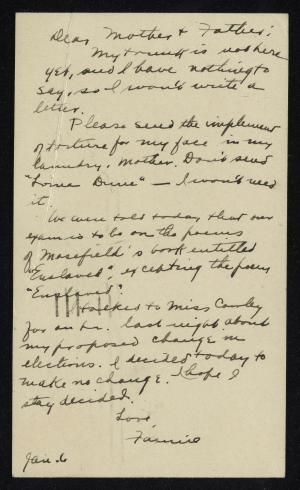 Dear Mother & Father:
My trunk is not here
yet, and I have nothing to
say, so I won't write a
letter.
Please send the implement
of torture for my face in my
laundry, Mother. Don't send
"Lorna Doone" — I won't need
it.
We were told today that our
exam is to be on the poems
of Masefield's book entitled
"Enslaved", excepting the poem
"Enslaved".
I talked to Miss
for an hr. last night about
my proposed change in
elections. I decided today to
make no change. I hope I
stay decided.
Love
Fannie
Jan. 6